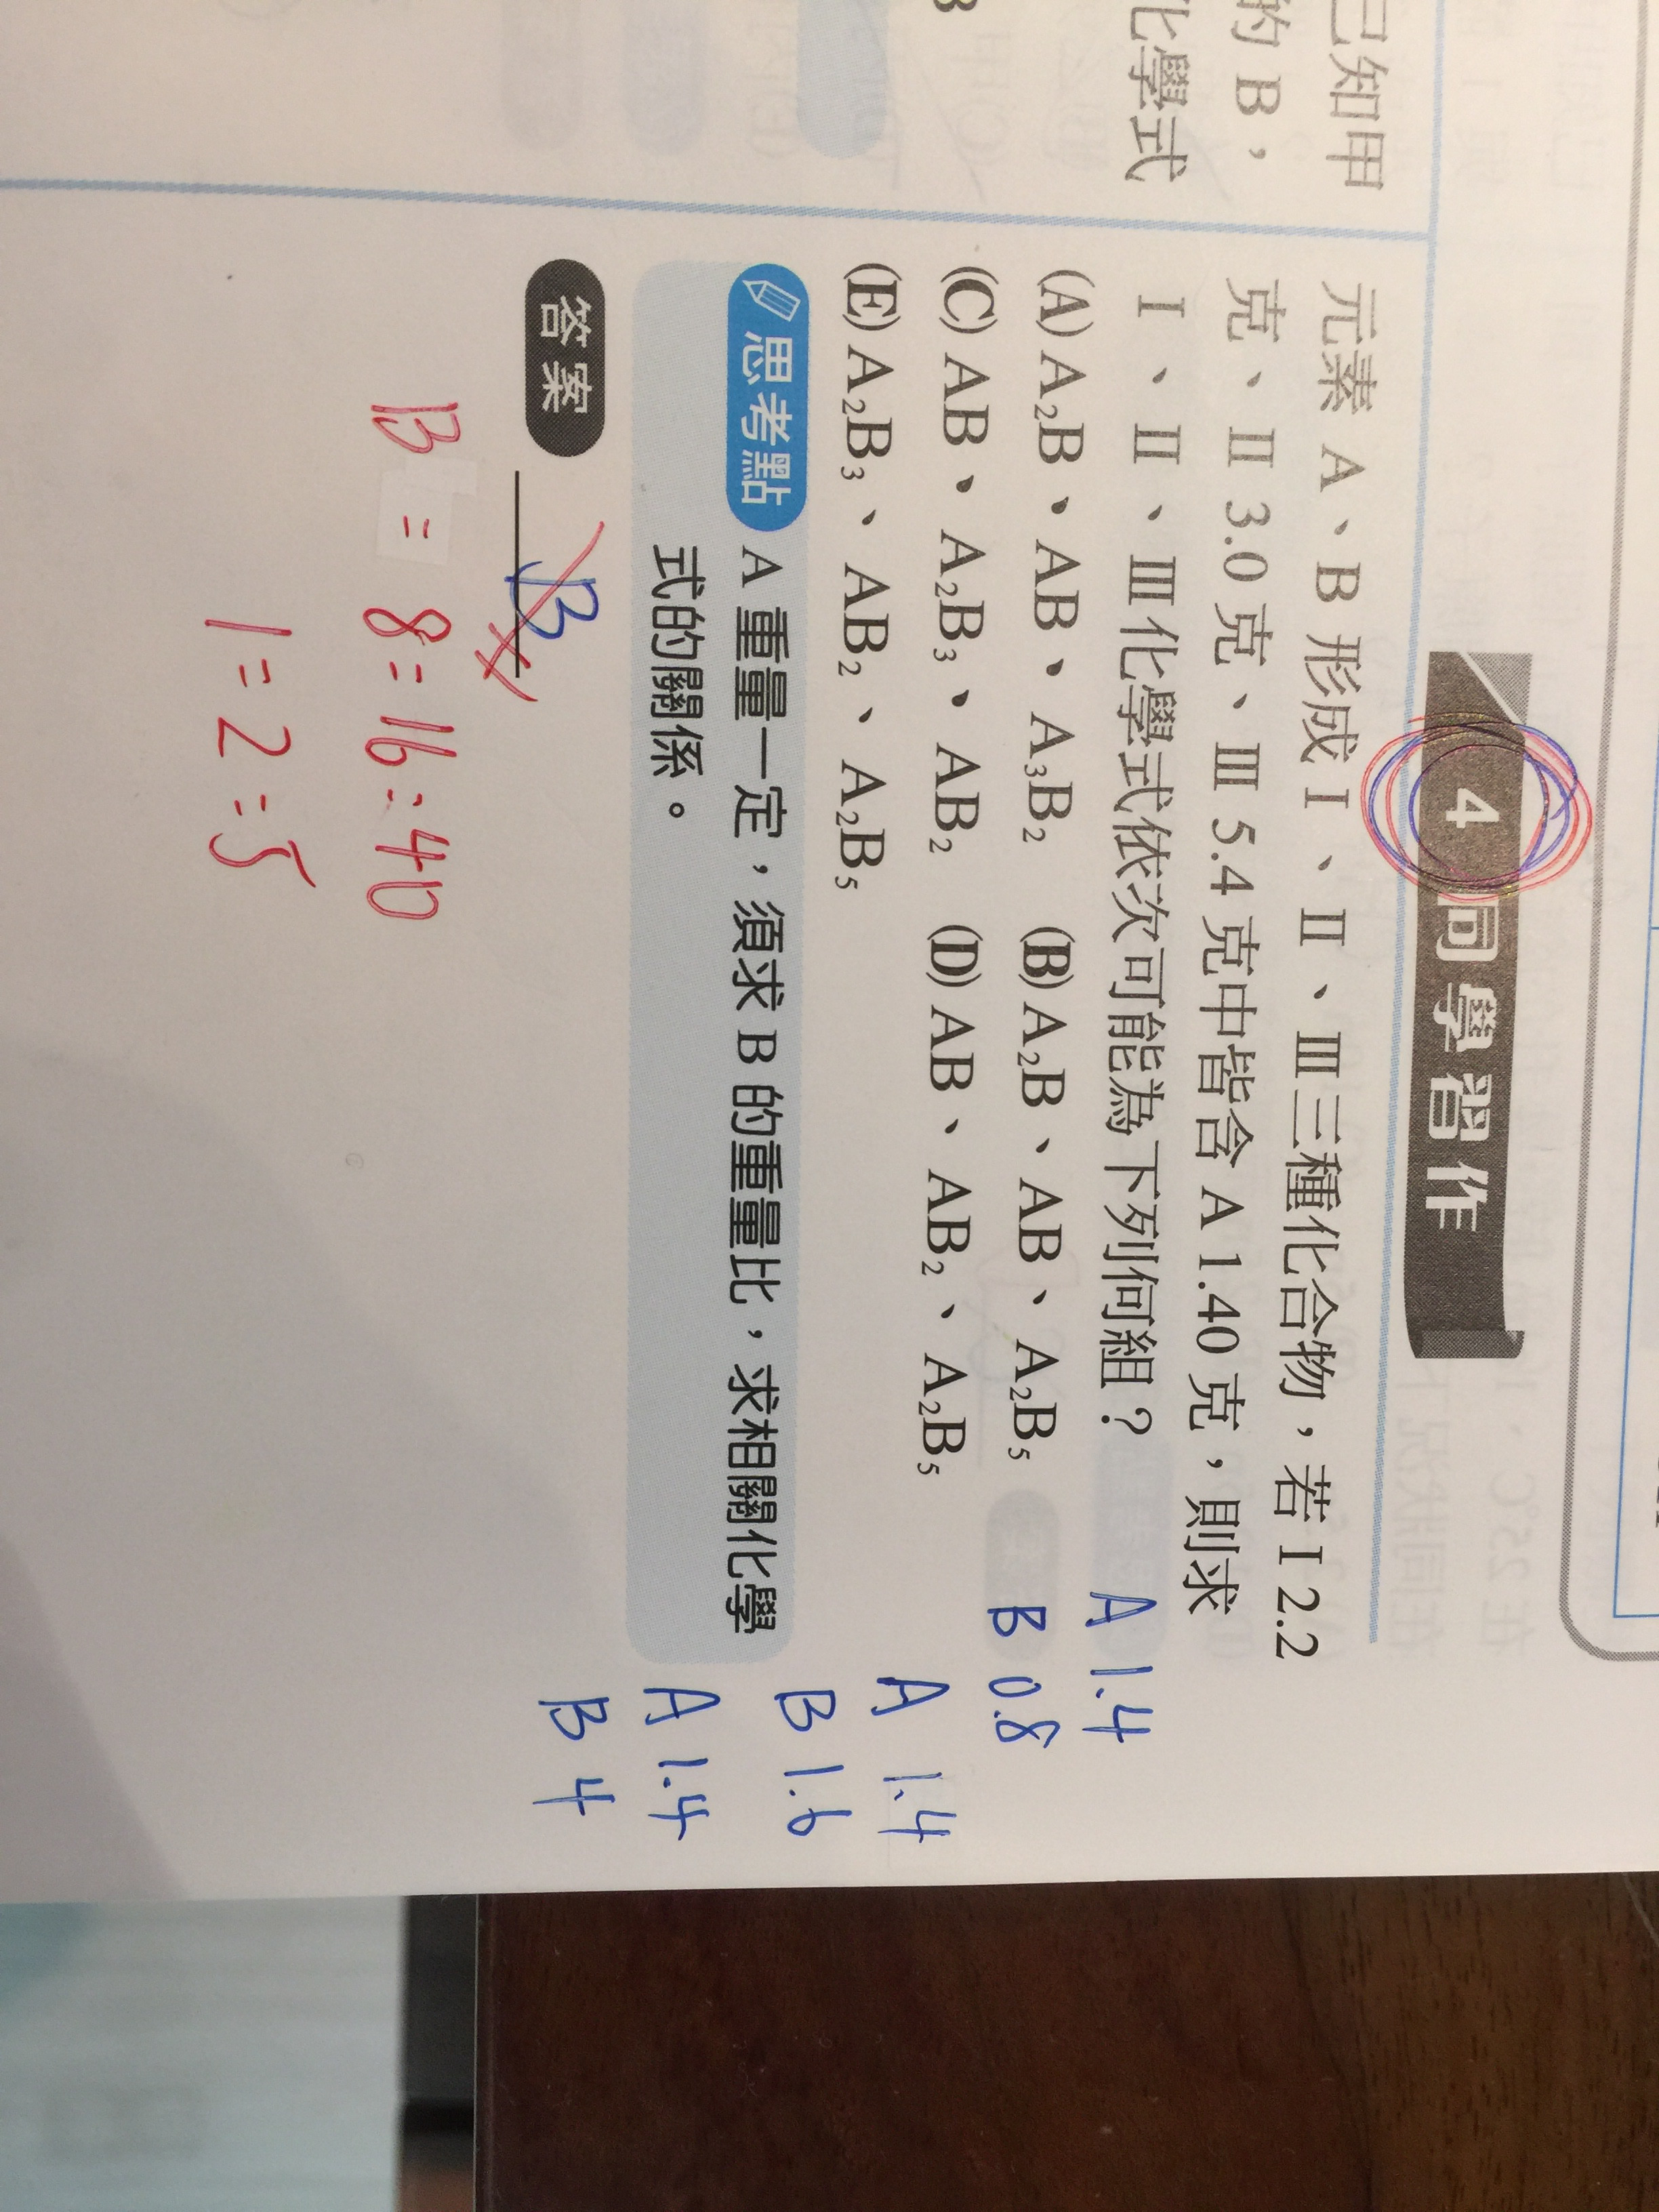 已知甲
的 B，
化學式
4 同學習作
元素 A、B 形成 I、II、III 三種化合物，若 I 2.2
克、II 3.0 克、III 5.4 克中皆含 A 1.40 克，則求
I、II、III 化學式依次可能為下列何組？
(A) A₂B、AB、A₃B₂ (B) A₂B、AB、A₂B₅
(C) AB、A₂B₃、AB₂ (D) AB、AB₂、A₂B₅
(E) A₂B₃、AB₂、A₂B₅
思考點 A 重量一定，須求 B 的重量比，求相關化學
式的關係。
A 1.4
B 0.8
A 1.4
B 1.6
A 1.4
B 4
答案 B
B = 8 = 16 = 40
1 = 2 = 5